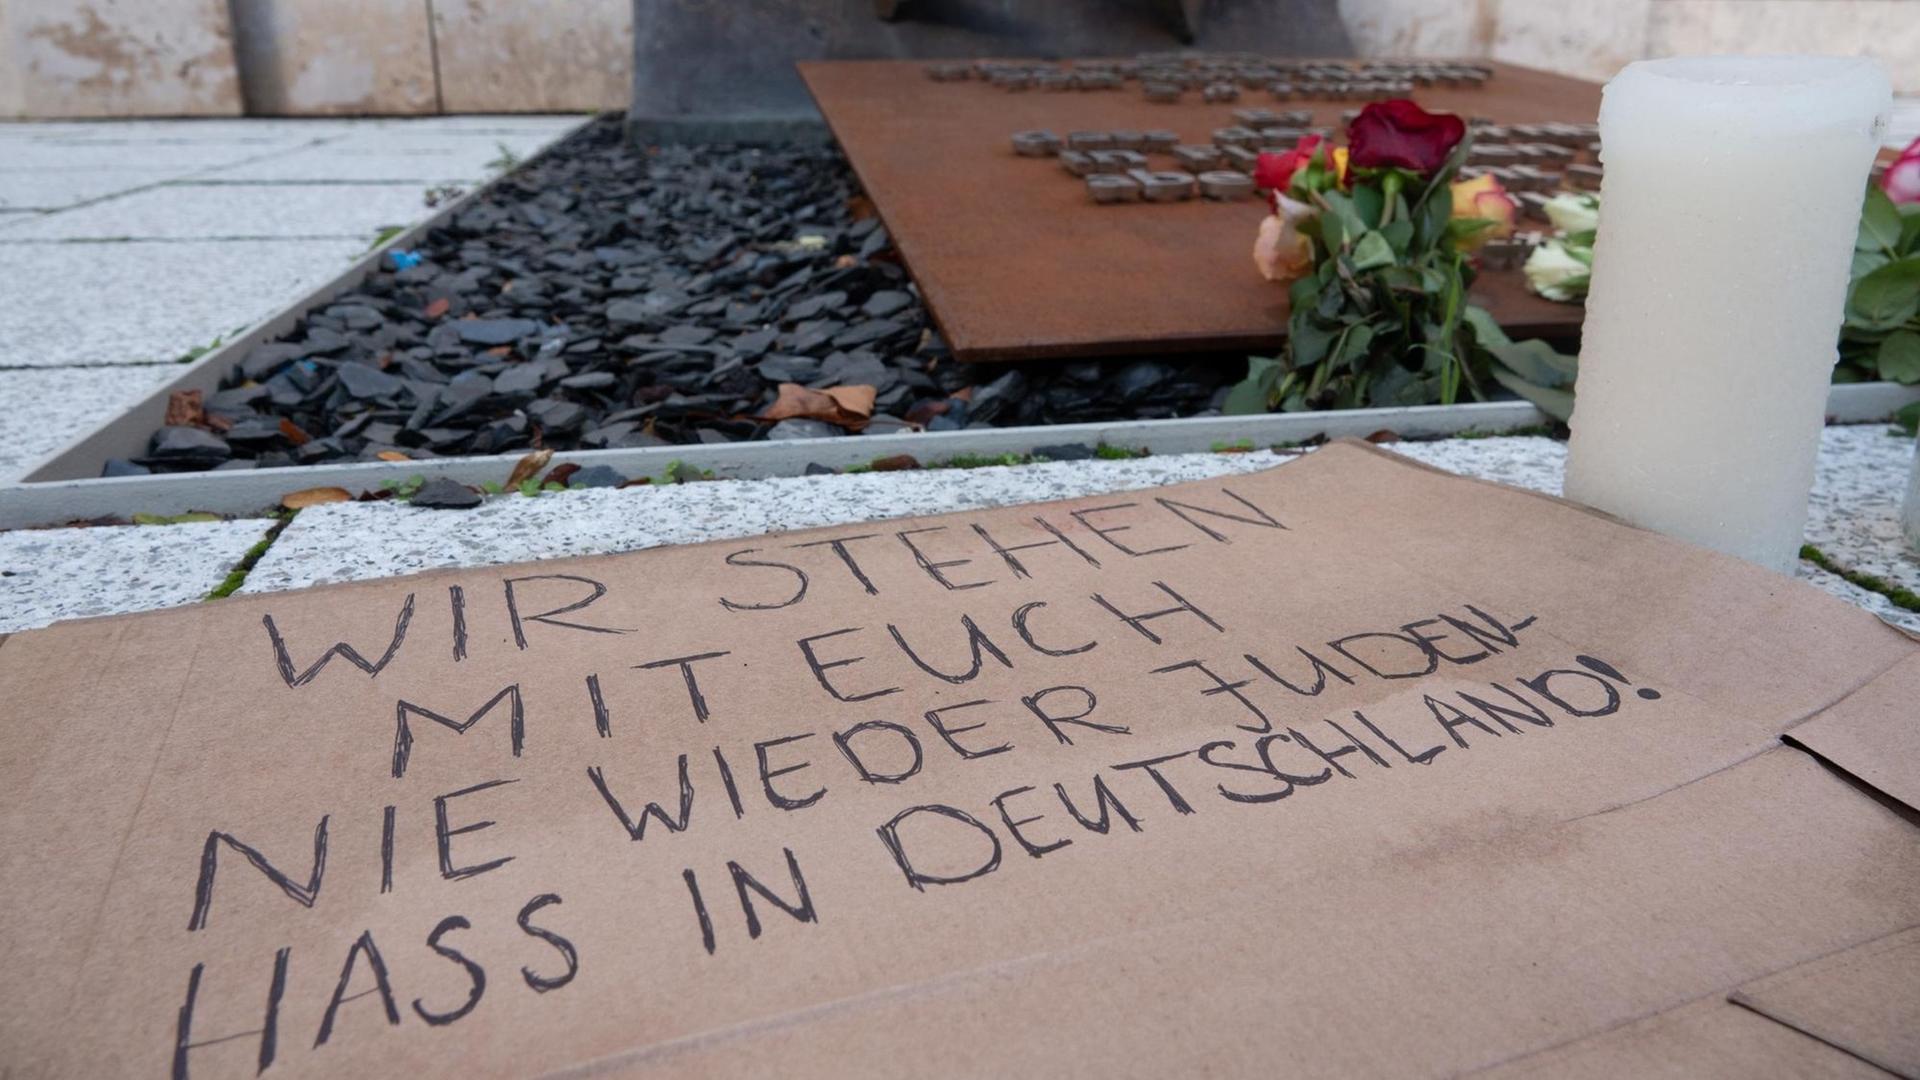 WIR STEHEN
MIT EUCH
NIE WIEDER JUDEN-
HASS IN DEUTSCHLAND!